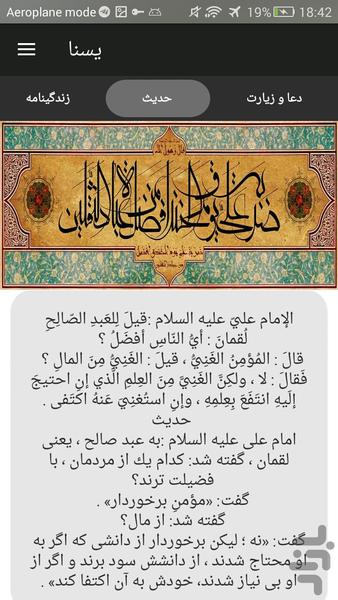 Aeroplane mode 19% 18:42
یسنا
دعا و زیارت
حدیث
زندگینامه
قال رسول الله
ضربة علي يوم الخندق افضل من عبادة الثقلين
الإمام عليّ عليه السلام :قيلَ لِلعَبدِ الصّالِحِ
لُقمانَ : أيُّ النّاسِ أفضَلُ ؟
قالَ : المُؤمِنُ الغَنِيُّ ، قيلَ : الغَنِيُّ مِنَ المالِ ؟
فَقالَ : لا ، ولكِنَّ الغَنِيَّ مِنَ العِلمِ الَّذي إنِ احتيجَ
إلَيهِ انتَفَعَ بِعِلمِهِ ، وإنِ استُغنِيَ عَنهُ اكتَفى .
حدیث
امام على عليه السلام :به عبد صالح ، يعنى
لقمان ، گفته شد: كدام يك از مردمان ، با
فضيلت ترند؟
گفت: «مؤمنِ برخوردار» .
گفته شد: از مال؟
گفت: «نه ؛ ليكن برخوردار از دانشى كه اگر به
او محتاج شدند، از دانشش سود برند و اگر از
او بى نياز شدند، خودش به آن اكتفا كند» .
بازار